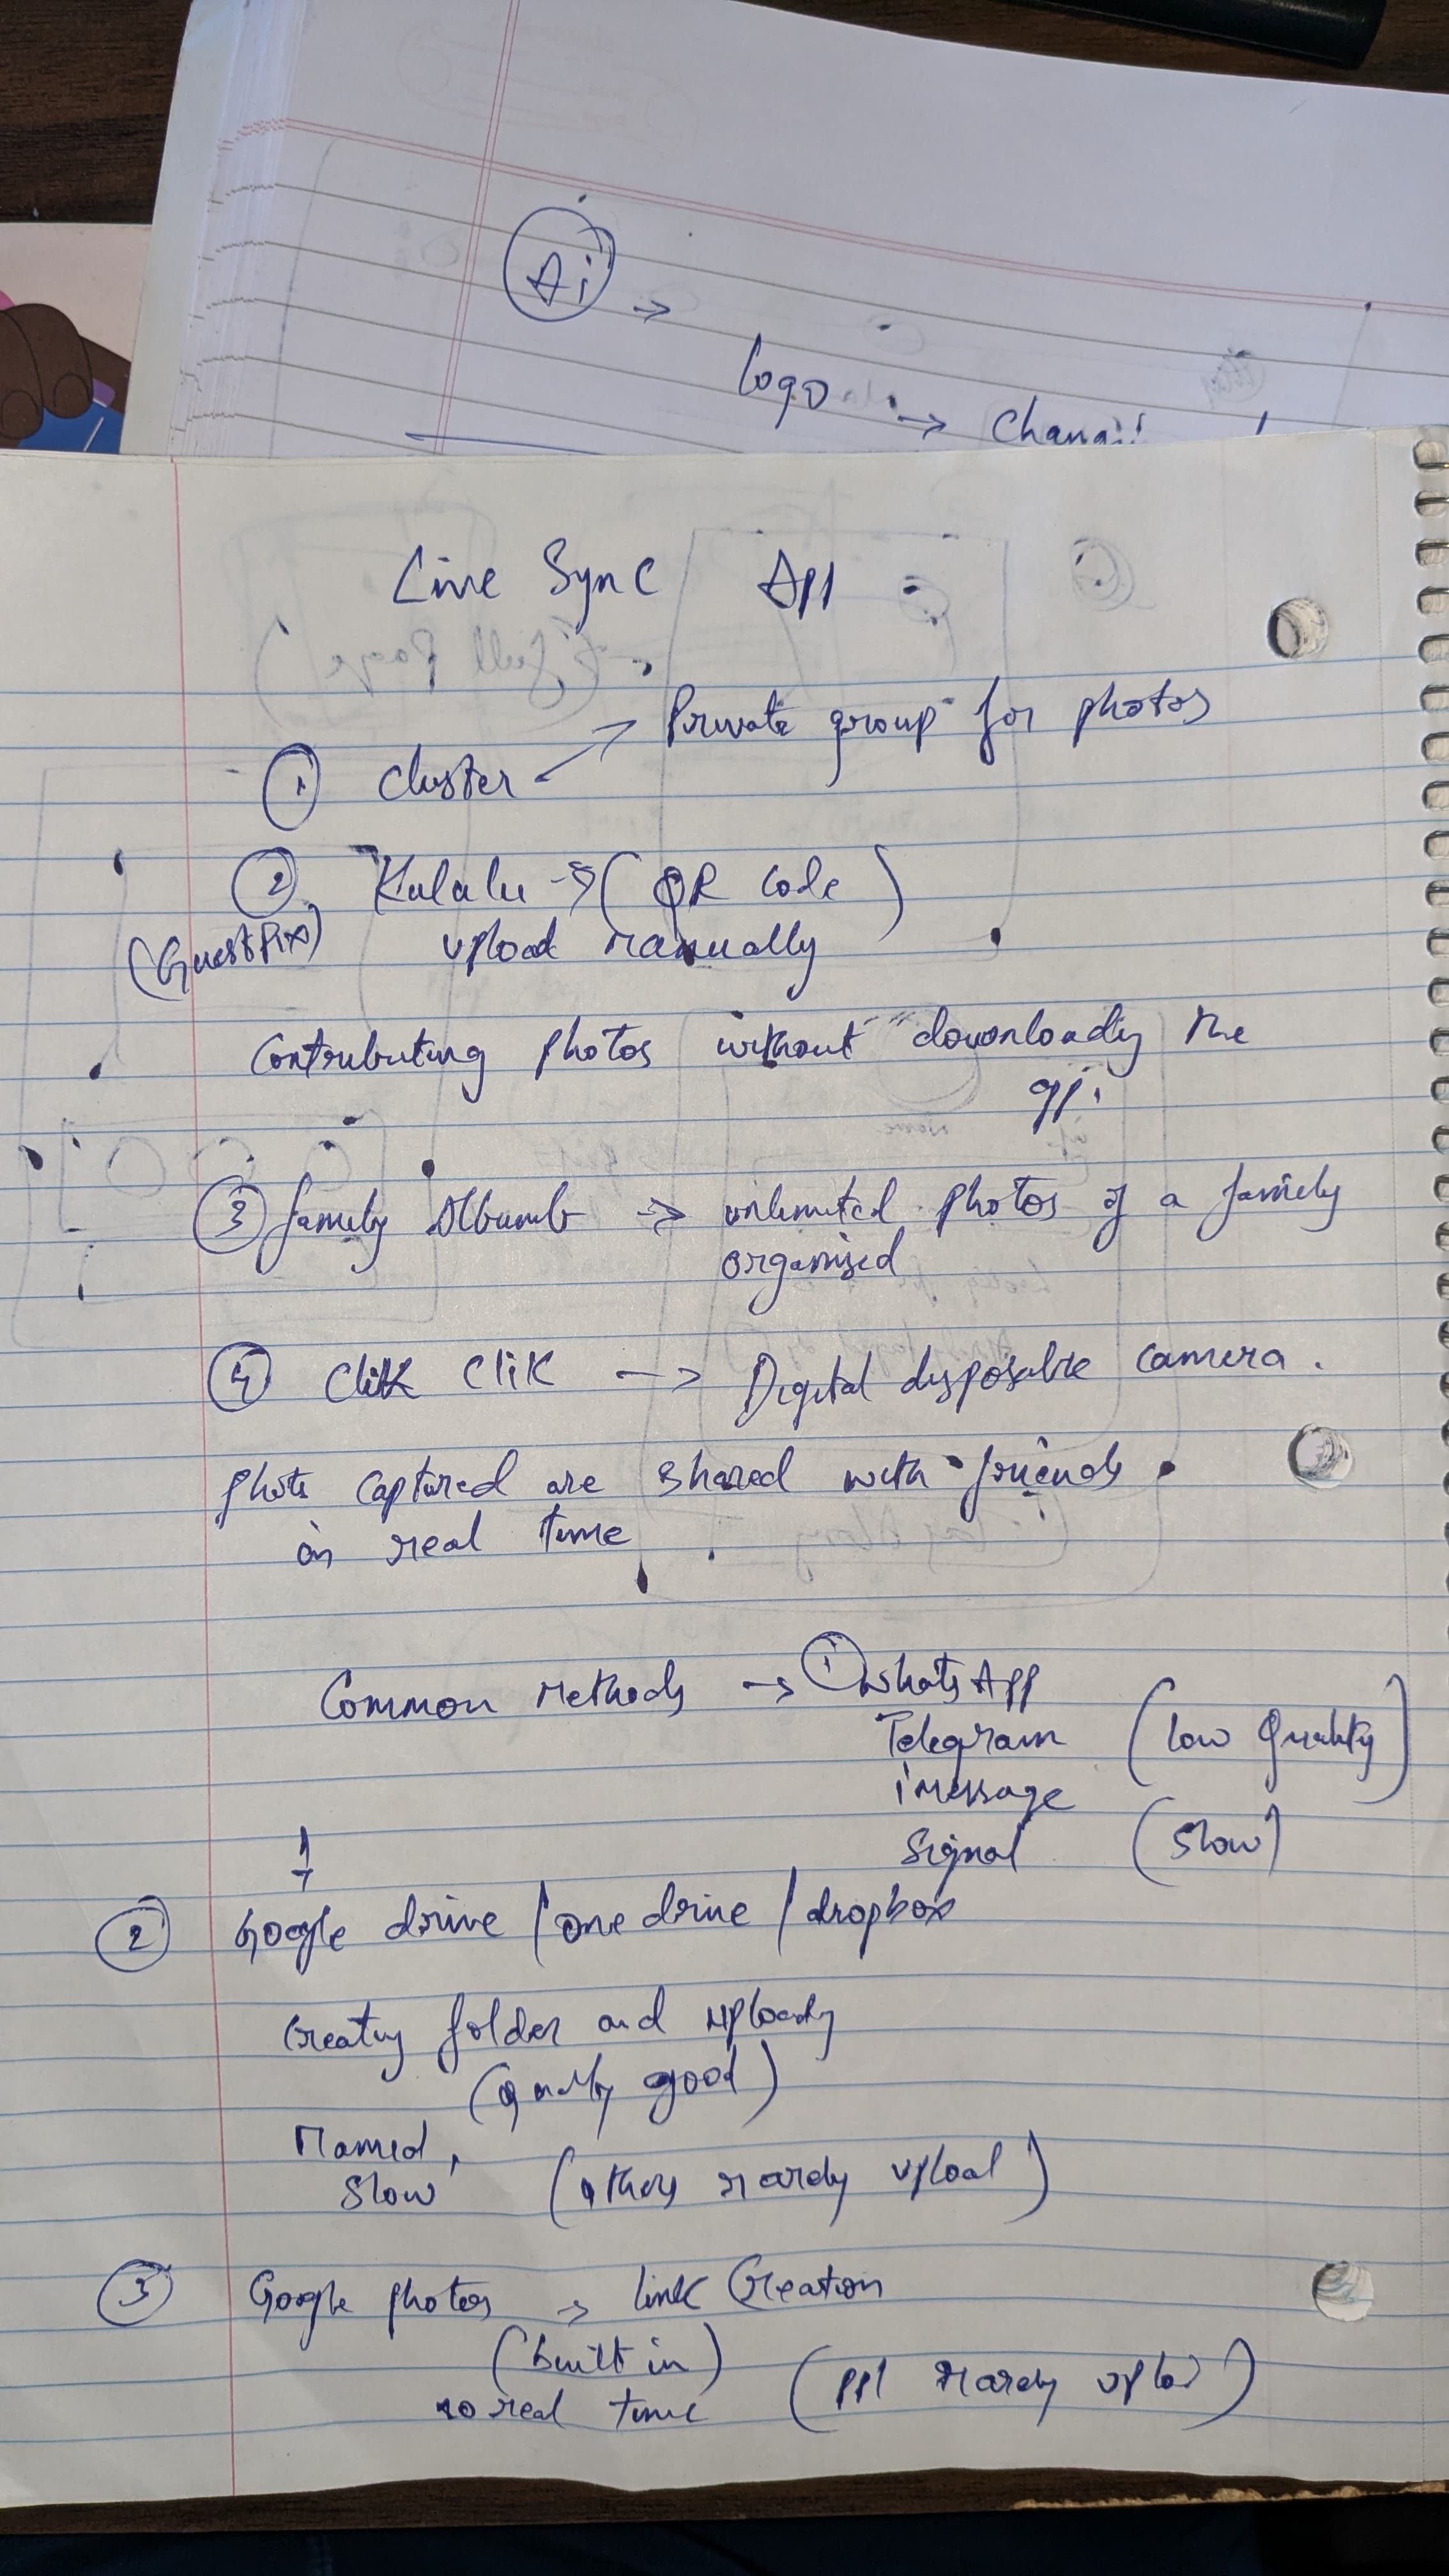 Ai →
logo → Changi
Live Sync App
① Cluster → Private group for photos
② Kululu → (QR Code)
(GuestPix) upload manually
Contributing photos without downloading the
app.
③ family Album → unlimited photos of a family
organised
④ Clik Clik → Digital disposable camera.
photos captured are shared with friends
in real time
Common Methods → ① WhatsApp
Telegram (low Quality)
imessage
Signal (slow)
② Google drive / one drive / dropbox
Creating folder and uploading
(quality good)
slow (others rarely upload)
③ Google photos → link Creation
(built in) (ppl rarely upload)
no real time